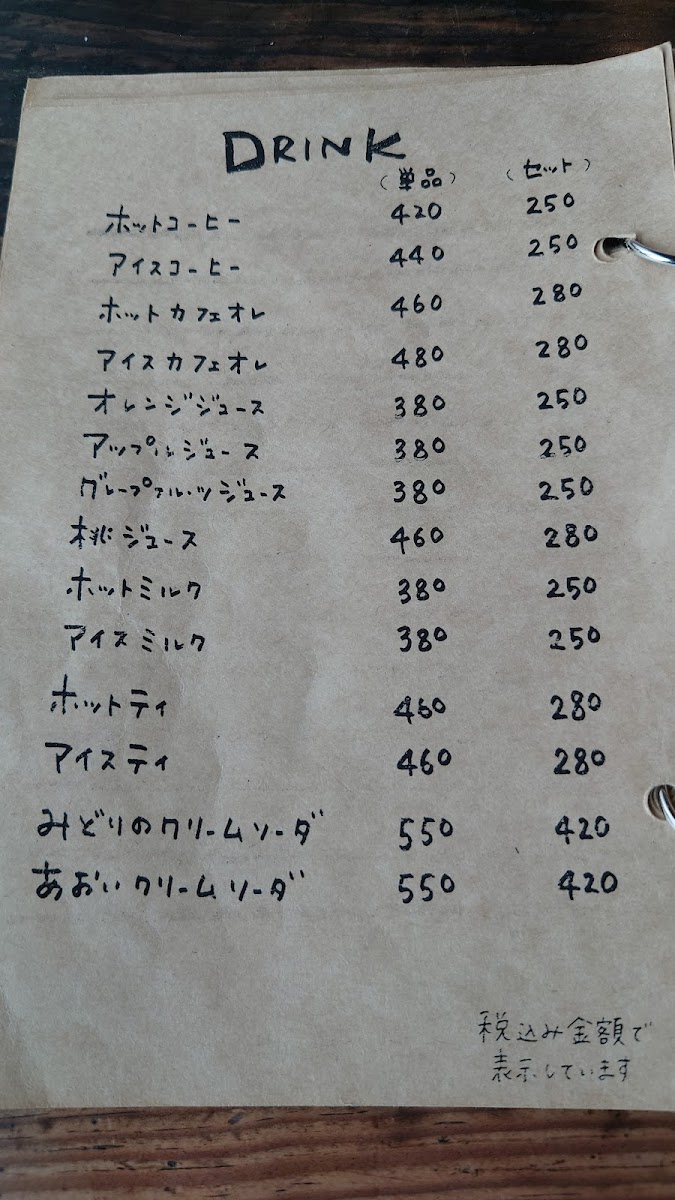 DRINK
(単品) (セット)
ホットコーヒー 420 250
アイスコーヒー 440 250
ホットカフェオレ 460 280
アイスカフェオレ 480 280
オレンジジュース 380 250
アップルジュース 380 250
グレープフルーツジュース 380 250
桃ジュース 460 280
ホットミルク 380 250
アイスミルク 380 250
ホットティ 460 280
アイスティ 460 280
みどりのクリームソーダ 550 420
あおいクリームソーダ 550 420
税込み金額で
表示しています